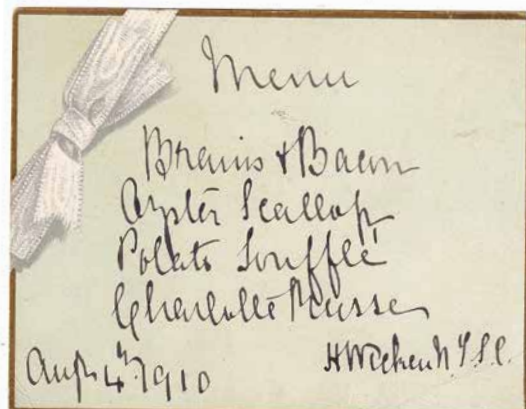 Menu
Brains & Bacon
Oyster Scallop
Potato Soufflé
Charlotte Russe
Aug 4th 1910